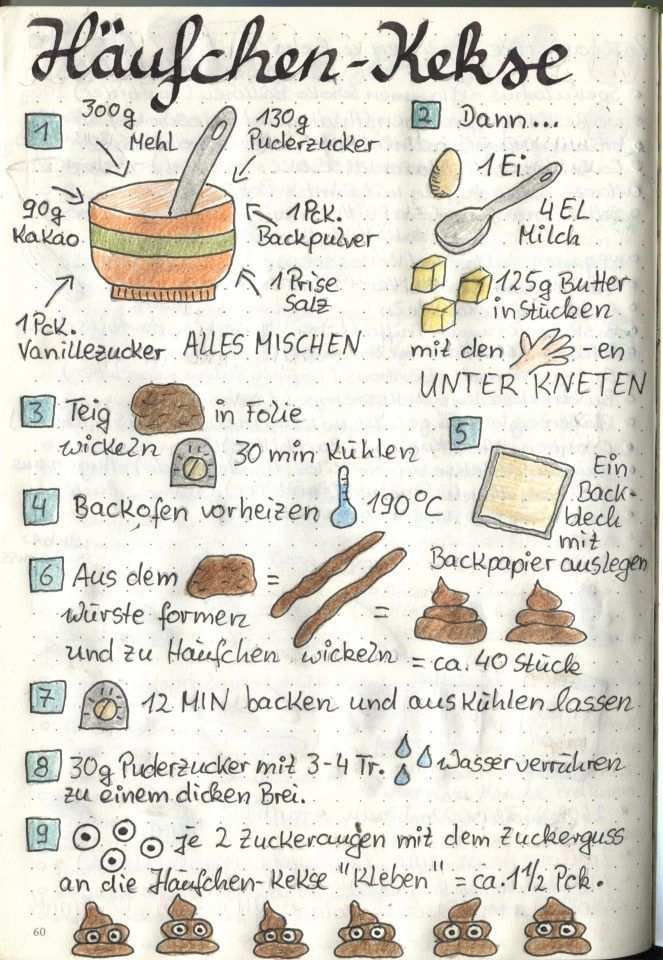 Häufchen-Kekse
1
300g
Mehl
130g
Puderzucker
90g
Kakao
1 Pck.
Backpulver
1 Prise
Salz
1 Pck.
Vanillezucker
ALLES MISCHEN
2 Dann....
1 Ei
4 EL
Milch
125g Butter
in Stücken
mit den en
UNTER KNETEN
3 Teig in Folie
wickeln 30 min Kühlen
4 Backofen vorheizen 190°C
5
Ein
Back-
blech
mit
Backpapier auslegen
6 Aus dem =
würste formen =
und zu Häufchen wickeln = ca. 40 Stück
7 12 MIN backen und auskühlen lassen
8 30g Puderzucker mit 3-4 Tr. Wasser verrühren
zu einem dicken Brei.
9 je 2 Zuckeraugen mit dem Zuckerguss
an die Häufchen-Kekse "Kleben" = ca. 1 1/2 Pck.
60